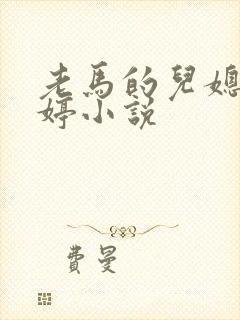 老馬的兒媳
婷小説
費曼